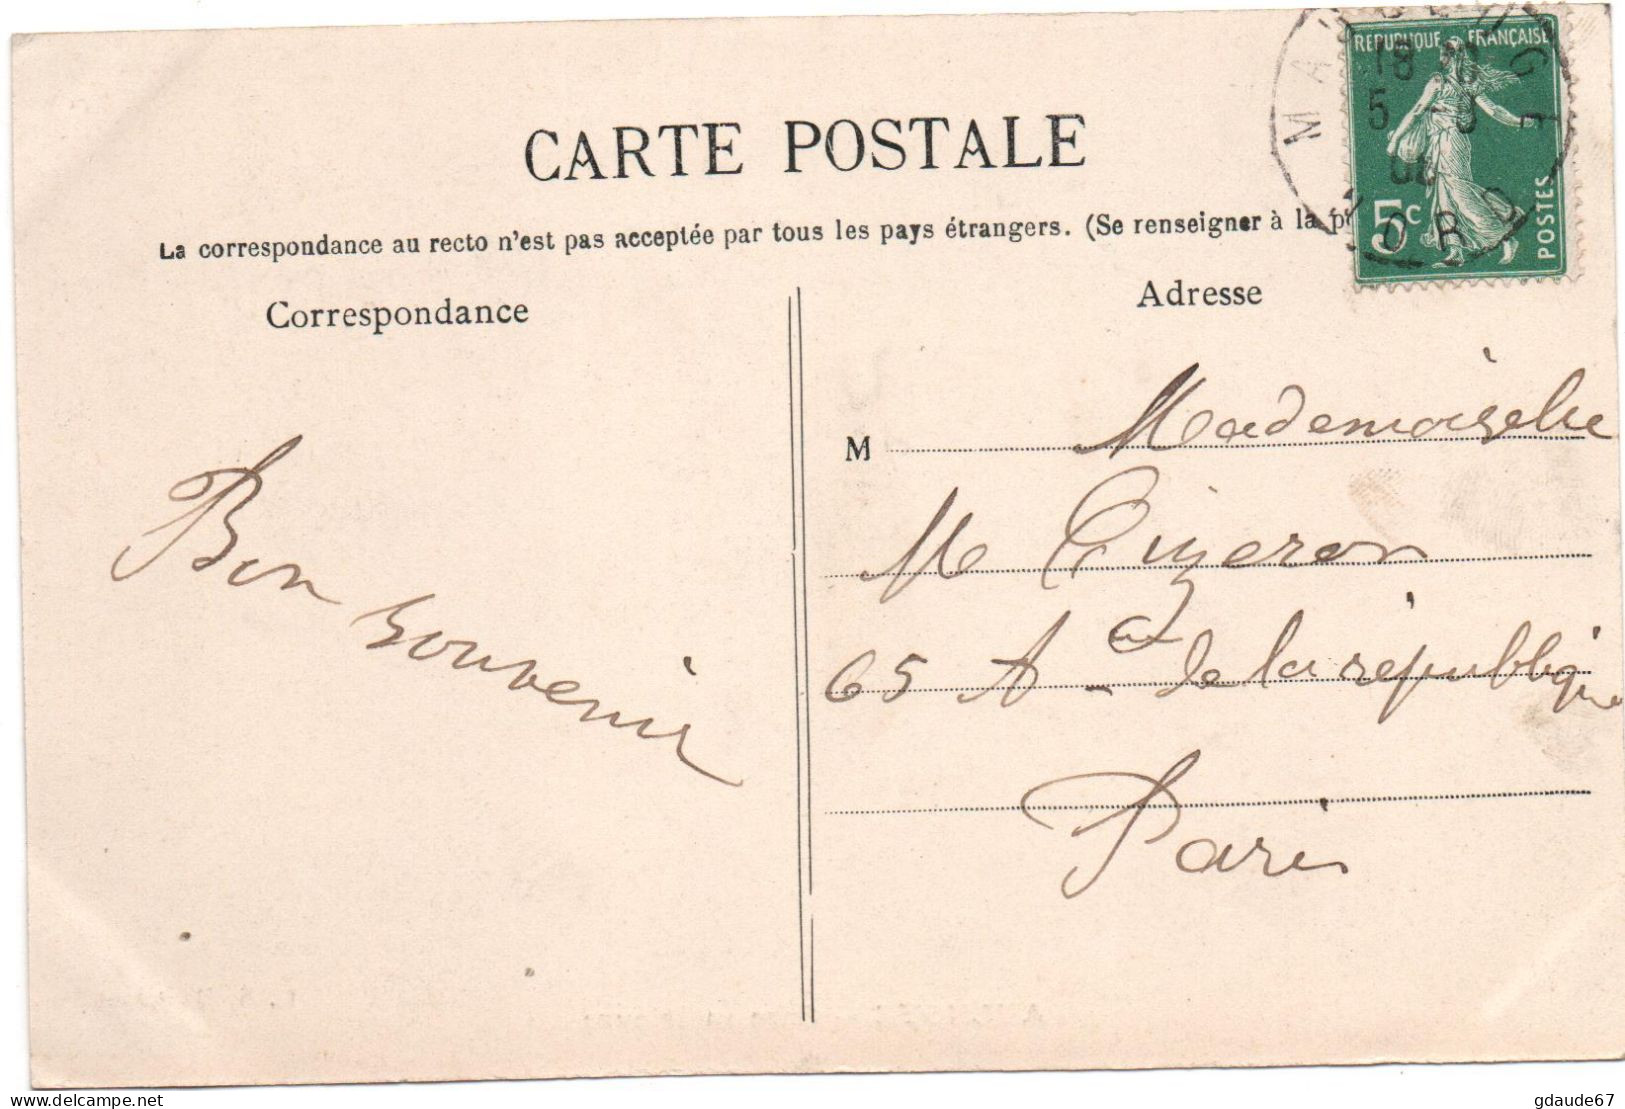 CARTE POSTALE
La correspondance au recto n'est pas acceptée par tous les pays étrangers. (Se renseigner à la p
Correspondance
Adresse
RÉPUBLIQUE FRANÇAISE
5c
POSTES
MAUBEUGE
18 30
5 -
NORD
Bon souvenir
M Mademoiselle
M Cizeron
65 A de la républlique
Paris
delcampe.net
gdaude67